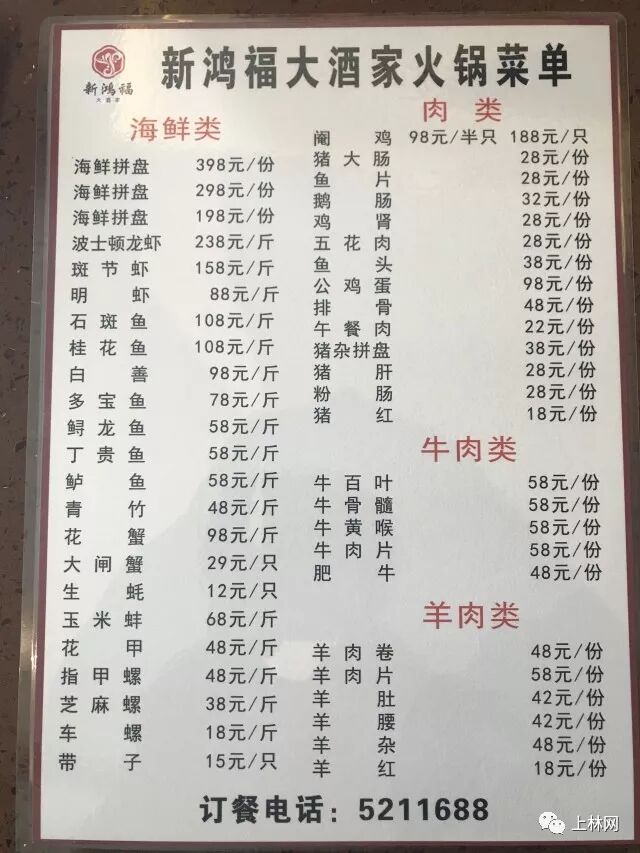 新鸿福
大酒家
新鸿福大酒家火锅菜单
海鲜类
海鲜拼盘 398元/份
海鲜拼盘 298元/份
海鲜拼盘 198元/份
波士顿龙虾 238元/斤
斑节虾 158元/斤
明虾 88元/斤
石斑鱼 108元/斤
桂花鱼 108元/斤
白善 98元/斤
多宝鱼 78元/斤
鲟龙鱼 58元/斤
丁贵鱼 58元/斤
鲈鱼 58元/斤
青竹 48元/斤
花蟹 98元/斤
大闸蟹 29元/只
生蚝 12元/只
玉米蚌 68元/斤
花甲 48元/斤
指甲螺 48元/斤
芝麻螺 38元/斤
车螺 18元/斤
带子 15元/只
肉类
阉鸡 98元/半只 188元/只
猪大肠 28元/份
鱼片 28元/份
鹅肠 32元/份
鸡肾 28元/份
五花肉 28元/份
鱼头 38元/份
公鸡蛋 98元/份
排骨 48元/份
午餐肉 22元/份
猪杂拼盘 38元/份
猪肝 28元/份
粉肠 28元/份
猪红 18元/份
牛肉类
牛百叶 58元/份
牛骨髓 58元/份
牛黄喉 58元/份
牛肉片 58元/份
肥牛 48元/份
羊肉类
羊肉卷 48元/份
羊肉片 58元/份
羊肚 42元/份
羊腰 42元/份
羊杂 48元/份
羊红 18元/份
订餐电话：5211688
上林网